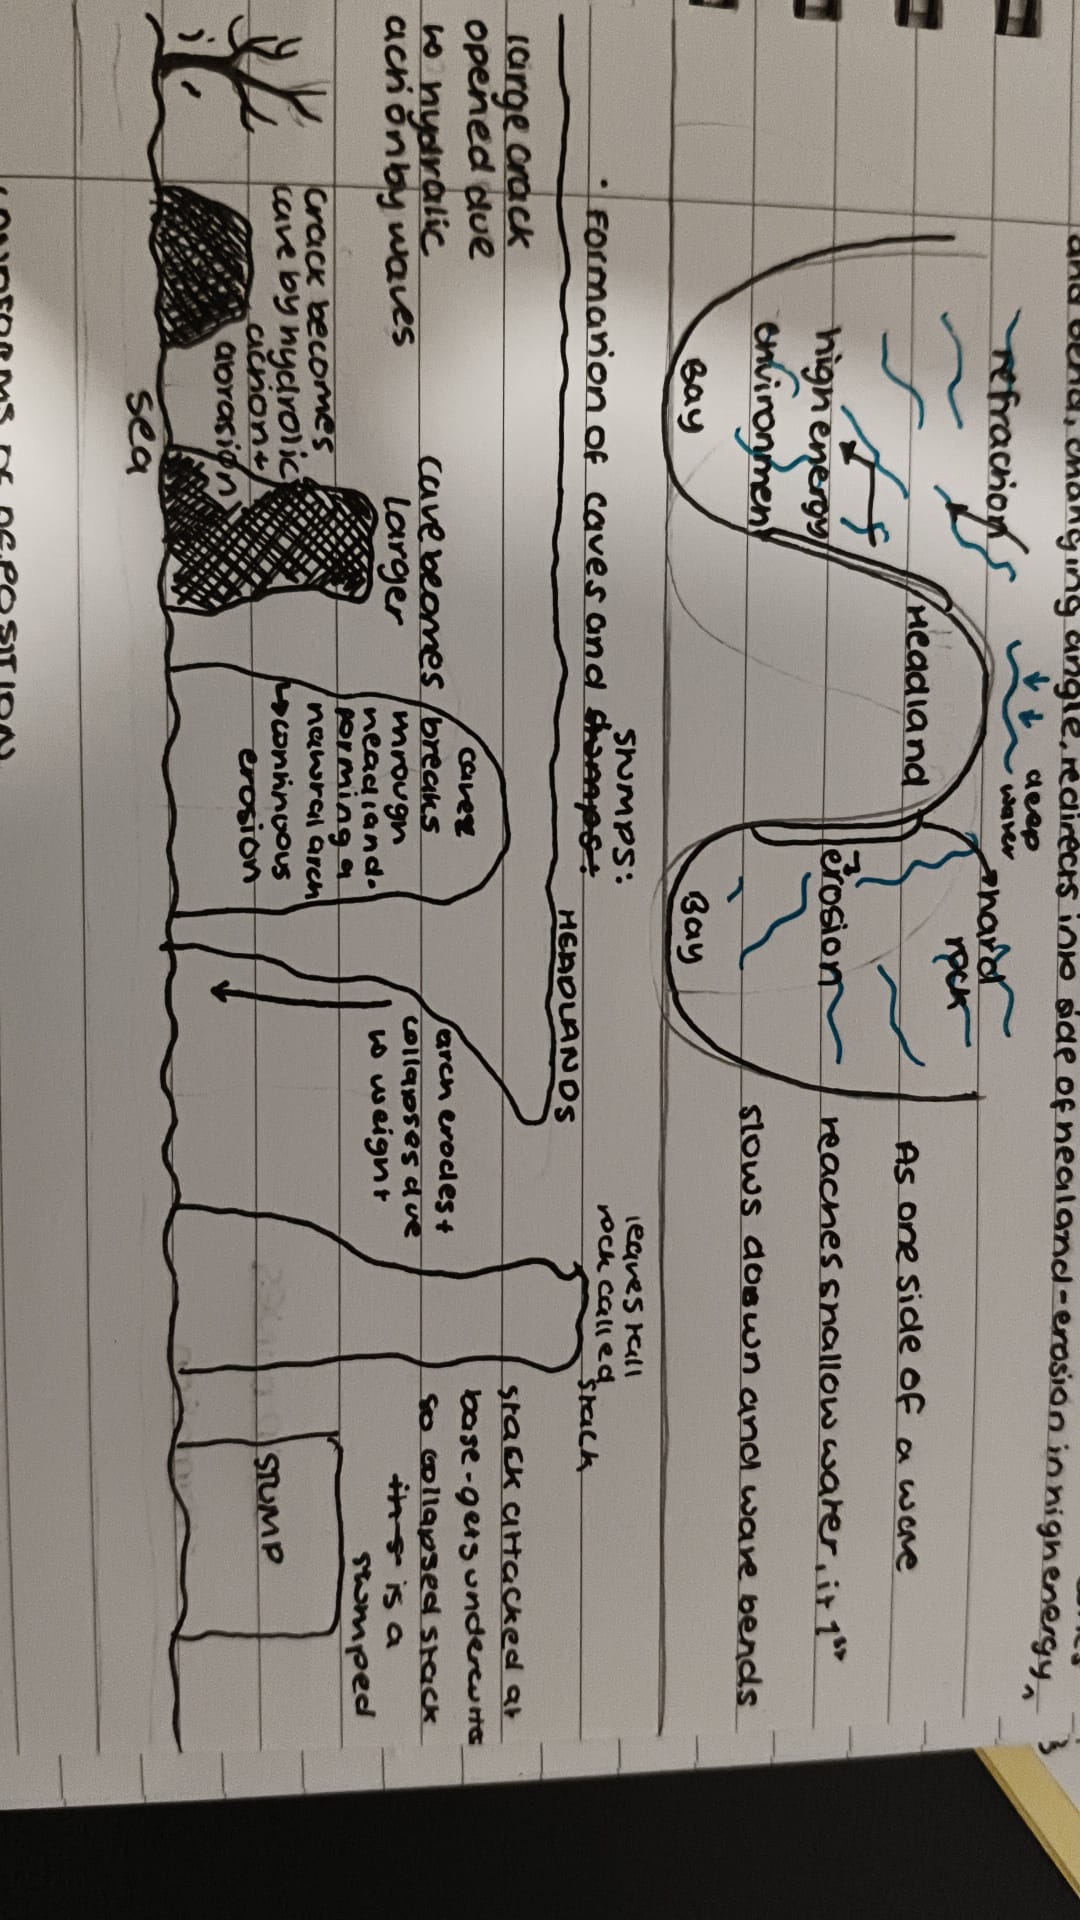 and bend, changing angle, redirects into side of nealand-erosion in high energy
refraction
deep
water
hard
rock
Headland
high energy
environment
erosion
Bay
Bay
As one side of a wave
reaches shallow water, it 1st
slows down and wave bends
stumps:
• Formation of caves and stumps:
HEADLANDS
large crack
opened due
to hydralic
action by waves
crack becomes
cave by hydrolic
action +
abrasion
Cave becomes
larger
caves
breaks
through
headland.
forming a
natural arch
→ continuous
erosion
arch erodes +
collapses due
to weight
leaves tall
rock called
stack
stack attacked at
base - gets undercuts
so collapsed stack
its is a
stumped
STUMP
sea
LANDFORMS OF DEPOSITION